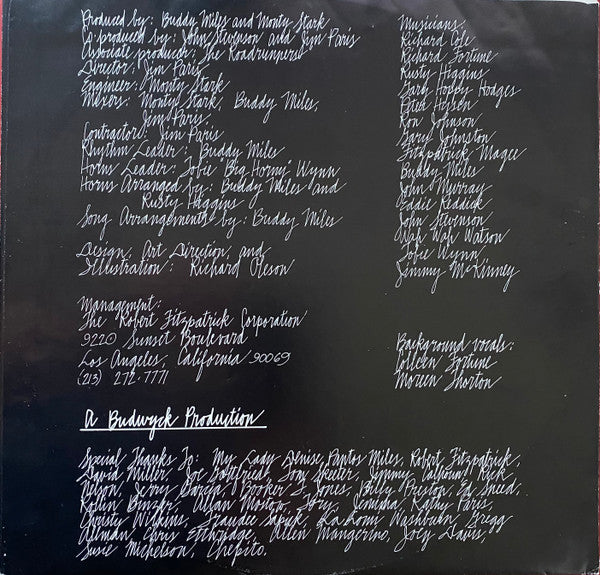 Produced by: Buddy Miles and Monty Stark
Co-produced by: John Stevenson and Jim Paris
Associate producer: The Roadrunners
Director: Jim Paris
Engineer: Monty Stark
Mixers: Monty Stark, Buddy Miles,
Jim Paris.
Contractors: Jim Paris
Rhythm Leader: Buddy Miles
Horns Leader: Tobie "Big Horny" Wynn
Horns Arranged by: Buddy Miles and
Rusty Higgins
Song Arrangements by: Buddy Miles
Design, Art Direction, and
Illustration: Richard Oleson
Management:
The Robert Fitzpatrick Corporation
9220 Sunset Boulevard
Los Angeles, California 90069
(213) 272-7771
A Budwyck Production
Musicians:
Richard Cole
Richard Fortune
Rusty Higgins
Gary Hoppy Hodges
Ron Johnson
Gary Johnston
Fitzpatrick Magee
Buddy Miles
John Murray
Eddie Reddick
John Stevenson
Wah Wah Watson
Tobie Wynn
Jimmy McKinney
Background vocals:
Colleen Fortune
Moreen Thorton
Special Thanks To: My Lady Denise Pantos Miles, Robert Fitzpatrick,
David Miller, Joe Gottfried, Tom Skeeter, Jimmy Calhoun, Rick
Nelson, Jerry Garcia, Booker T. Jones, Billy Preston, Ed Sneed,
Robin Allan Joey, Kathy Paris,
Christy Wilkins, Washburn, Gregg
Allman, Chris Ethridge, Allen Mangerino, Joey Davis,
Susie Michelson, Chepito.